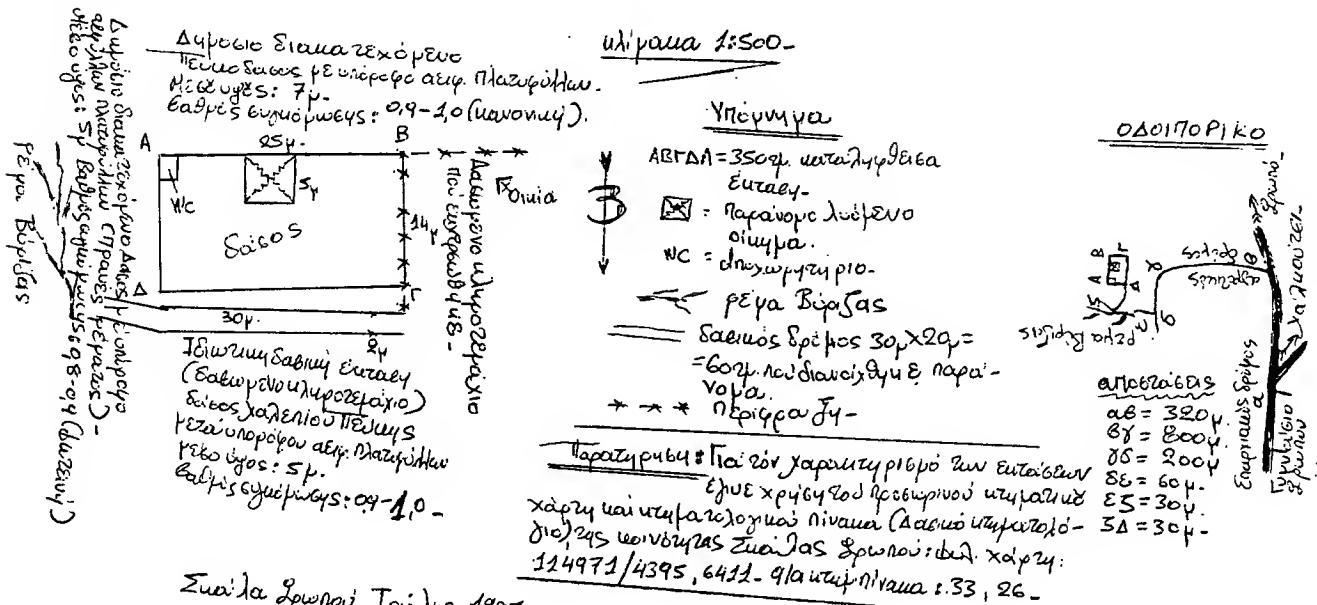 κλίμακα 1:500-
Δημόσιο διακατεχόμενο
Πευκοδάσος με υπόροφο αειφ. Πλατυφύλλων.
Μέσο ύψος: 7μ.
βαθμός συγκόμωσης: 0,9-1,0 (κανονική).
Δημόσιο διακατεχόμενο δάσος με υπόροφο
αειφύλλων πλατυφύλλων (πρανές ρέματος)-
Μέσο ύψος: 5μ βαθμός συγκόμωσης 0,8-0,9 (φωτεινή)
ρέμα Βύριζας
Α
25μ.
Β
WC
5μ
δάσος
14μ
Δ
Γ
30μ.
2μ
Δασωμένο κληροτεμάχιο
Οικία
Ιδιωτική δασική έκταση
(δασωμένο κληροτεμάχιο)
δάσος χαλεπίου Πεύκης
μετά υπορόφου αειφ. Πλατυφύλλων
μέσο ύψος: 5μ.
βαθμός συγκόμωσης: 0,9-1,0-
Β
Υπόμνημα
ΑΒΓΔΑ = 350τμ. καταληφθείσα
έκταση-
= Παράνομο λυόμενο
οίκημα.
WC = αποχωρητήριο-
ρέμα Βύριζας
δασικός δρόμος 30μ X 20μ =
= 60τμ. που διανοίχθηκε παρά-
νομα.
Περίφραξη-
Παρατήρηση: Για τόν χαρακτηρισμό των εκτάσεων
έγινε χρήση του προσωρινού κτηματικού
χάρτη και κτηματολογικού πίνακα (Δασικό κτηματολό-
γιο) της κοινότητας Σκάλας Ωρωπού: φυλ. χάρτη:
114971/4395, 6411- α/α κτημ. πίνακα: 33, 26-
ΟΔΟΙΠΟΡΙΚΟ
Ωρωπό-
Χαλκούτσι-
αγροτικός δρόμος
Επαρχιακός δρόμος
Γυμνάσιο Ωρωπού
ρέμα Βύριζας
Β Γ
Α Δ
ζ
ε
δ
γ
β
α
αποστάσεις
αβ = 320μ.
βγ = 800μ.
γδ = 200μ
δε = 60μ-
εζ = 30μ.
ζΔ = 30μ-
Σκάλα Ωρωπού